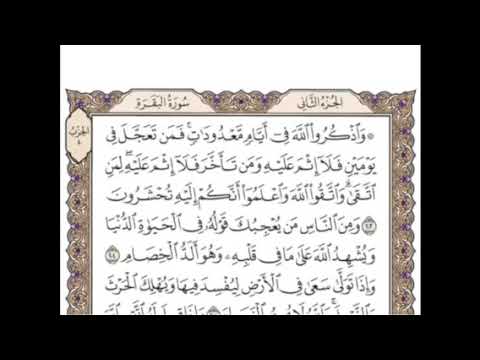 الجُزْءُ الثَّانِي
سُورَةُ البَقَرَةِ
الحِزْبُ
٤
۞ وَاذْكُرُوا اللَّهَ فِي أَيَّامٍ مَّعْدُودَاتٍ ۚ فَمَن تَعَجَّلَ فِي
يَوْمَيْنِ فَلَا إِثْمَ عَلَيْهِ وَمَن تَأَخَّرَ فَلَا إِثْمَ عَلَيْهِ ۚ لِمَنِ
اتَّقَىٰ ۗ وَاتَّقُوا اللَّهَ وَاعْلَمُوا أَنَّكُمْ إِلَيْهِ تُحْشَرُونَ
وَمِنَ النَّاسِ مَن يُعْجِبُكَ قَوْلُهُ فِي الْحَيَوٰةِ الدُّنْيَا
وَيُشْهِدُ اللَّهَ عَلَىٰ مَا فِي قَلْبِهِ وَهُوَ أَلَدُّ الْخِصَامِ
وَإِذَا تَوَلَّىٰ سَعَىٰ فِي الْأَرْضِ لِيُفْسِدَ فِيهَا وَيُهْلِكَ الْحَرْثَ